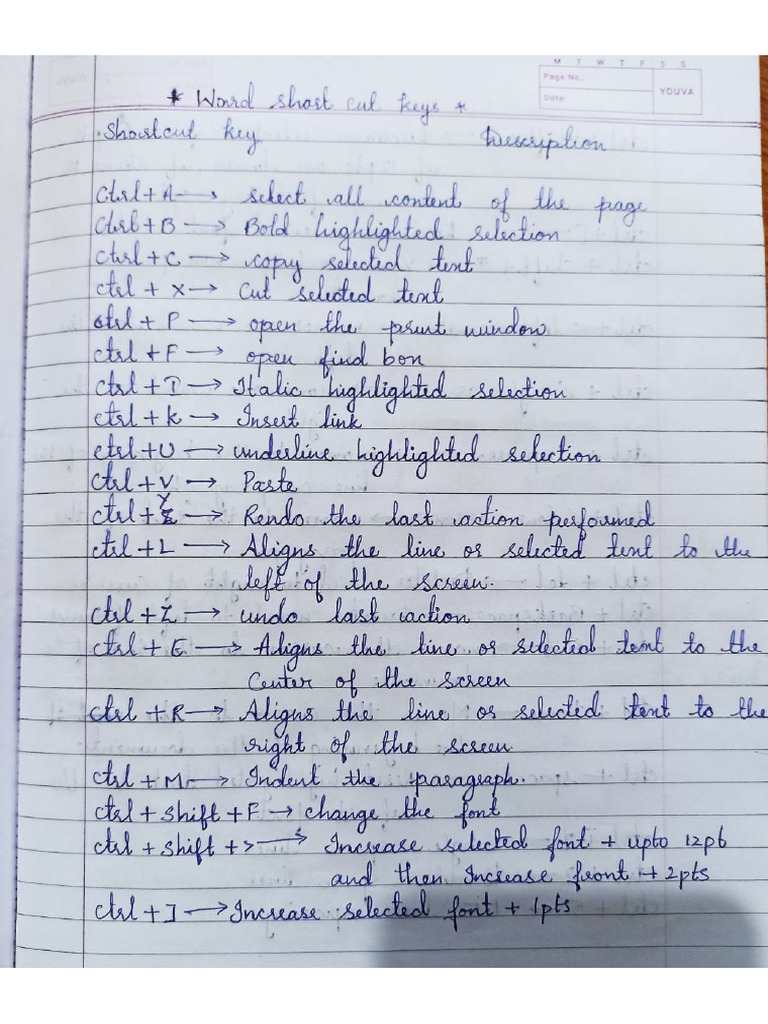 M T W T F S S
Page No.:
Date:
YOUVA
* Word short cut keys *
Shortcut key Description
Ctrl + A → select all content of the page
Ctrl + B → Bold highlighted selection
Ctrl + C → copy selected text
ctrl + x → Cut selected text
ctrl + P → open the print window
ctrl + F → open find box
ctrl + I → Italic highlighted selection
ctrl + k → Insert link
ctrl + U → underline highlighted selection
ctrl + v → Paste
ctrl + Y → Rendo the last action performed
ctrl + L → Aligns the line or selected text to the
left of the screen.
ctrl + Z → undo last action
ctrl + E → Aligns the line or selected text to the
Center of the screen
ctrl + R → Aligns the line or selected text to the
right of the screen
ctrl + M → Indent the paragraph.
ctrl + shift + F → change the font
ctrl + shift + > → Increase selected font + upto 12pt
and then Increase front + 2pts
ctrl + ] → Increase selected font + 1pts